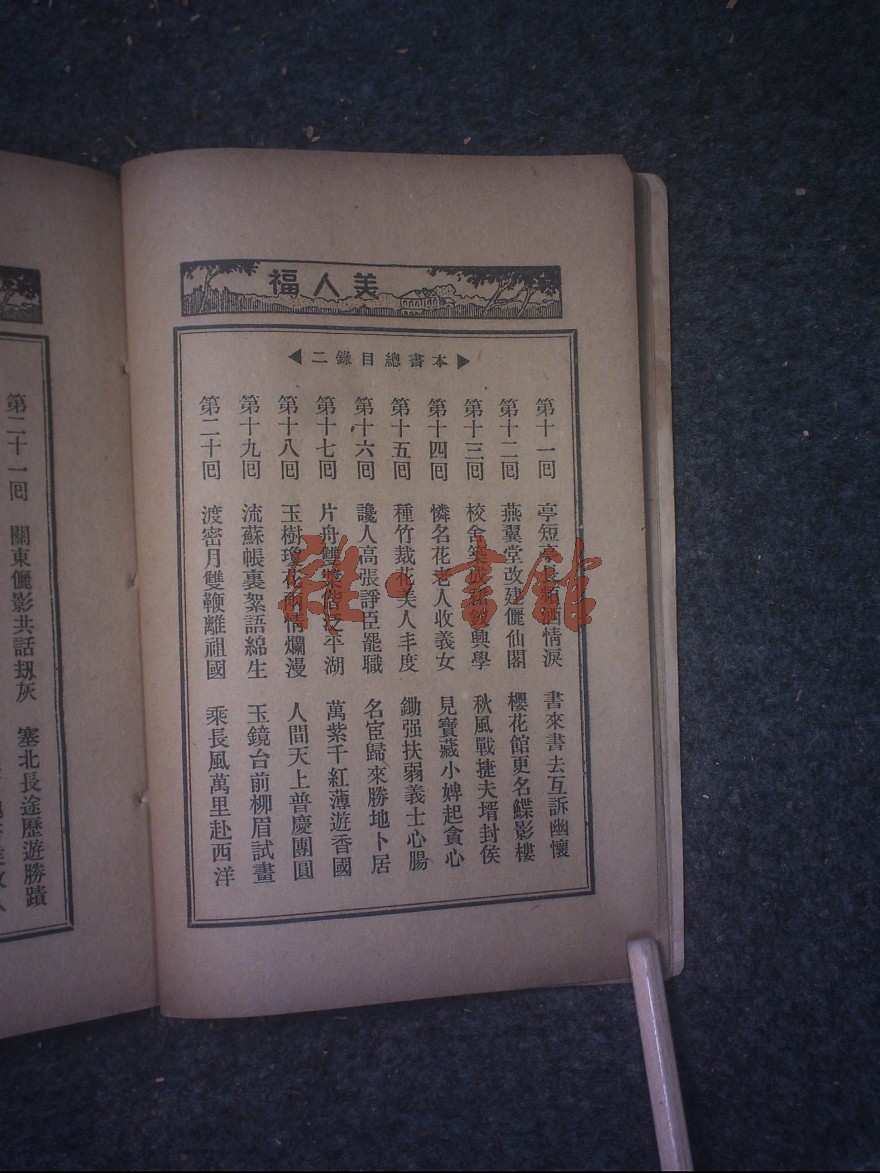 美人福
本書總目錄二
第十一回 亭短亭長頻洒情淚 書來書去互訴幽懷
第十二回 燕翼堂改建儷仙閣 櫻花館更名蝶影樓
第十三回 校舍築成 興學 秋風戰捷夫壻封侯
第十四回 憐名花老人收義女 見寶藏小婢起貪心
第十五回 種竹裁花美人丰度 鋤强扶弱義士心腸
第十六回 讒人高張諍臣罷職 名宦歸來勝地卜居
第十七回 片舟雙槳偕泛平湖 萬紫千紅薄遊香國
第十八回 玉樹瓊花兩情爛漫 人間天上普慶團圓
第十九回 流蘇帳裏絮語綿生 玉鏡台前柳眉試畫
第二十回 渡密月雙鞭離祖國 乘長風萬里赴西洋
第二十一回 關東儷影共話刼灰 塞北長途歷遊勝蹟
雜·書館